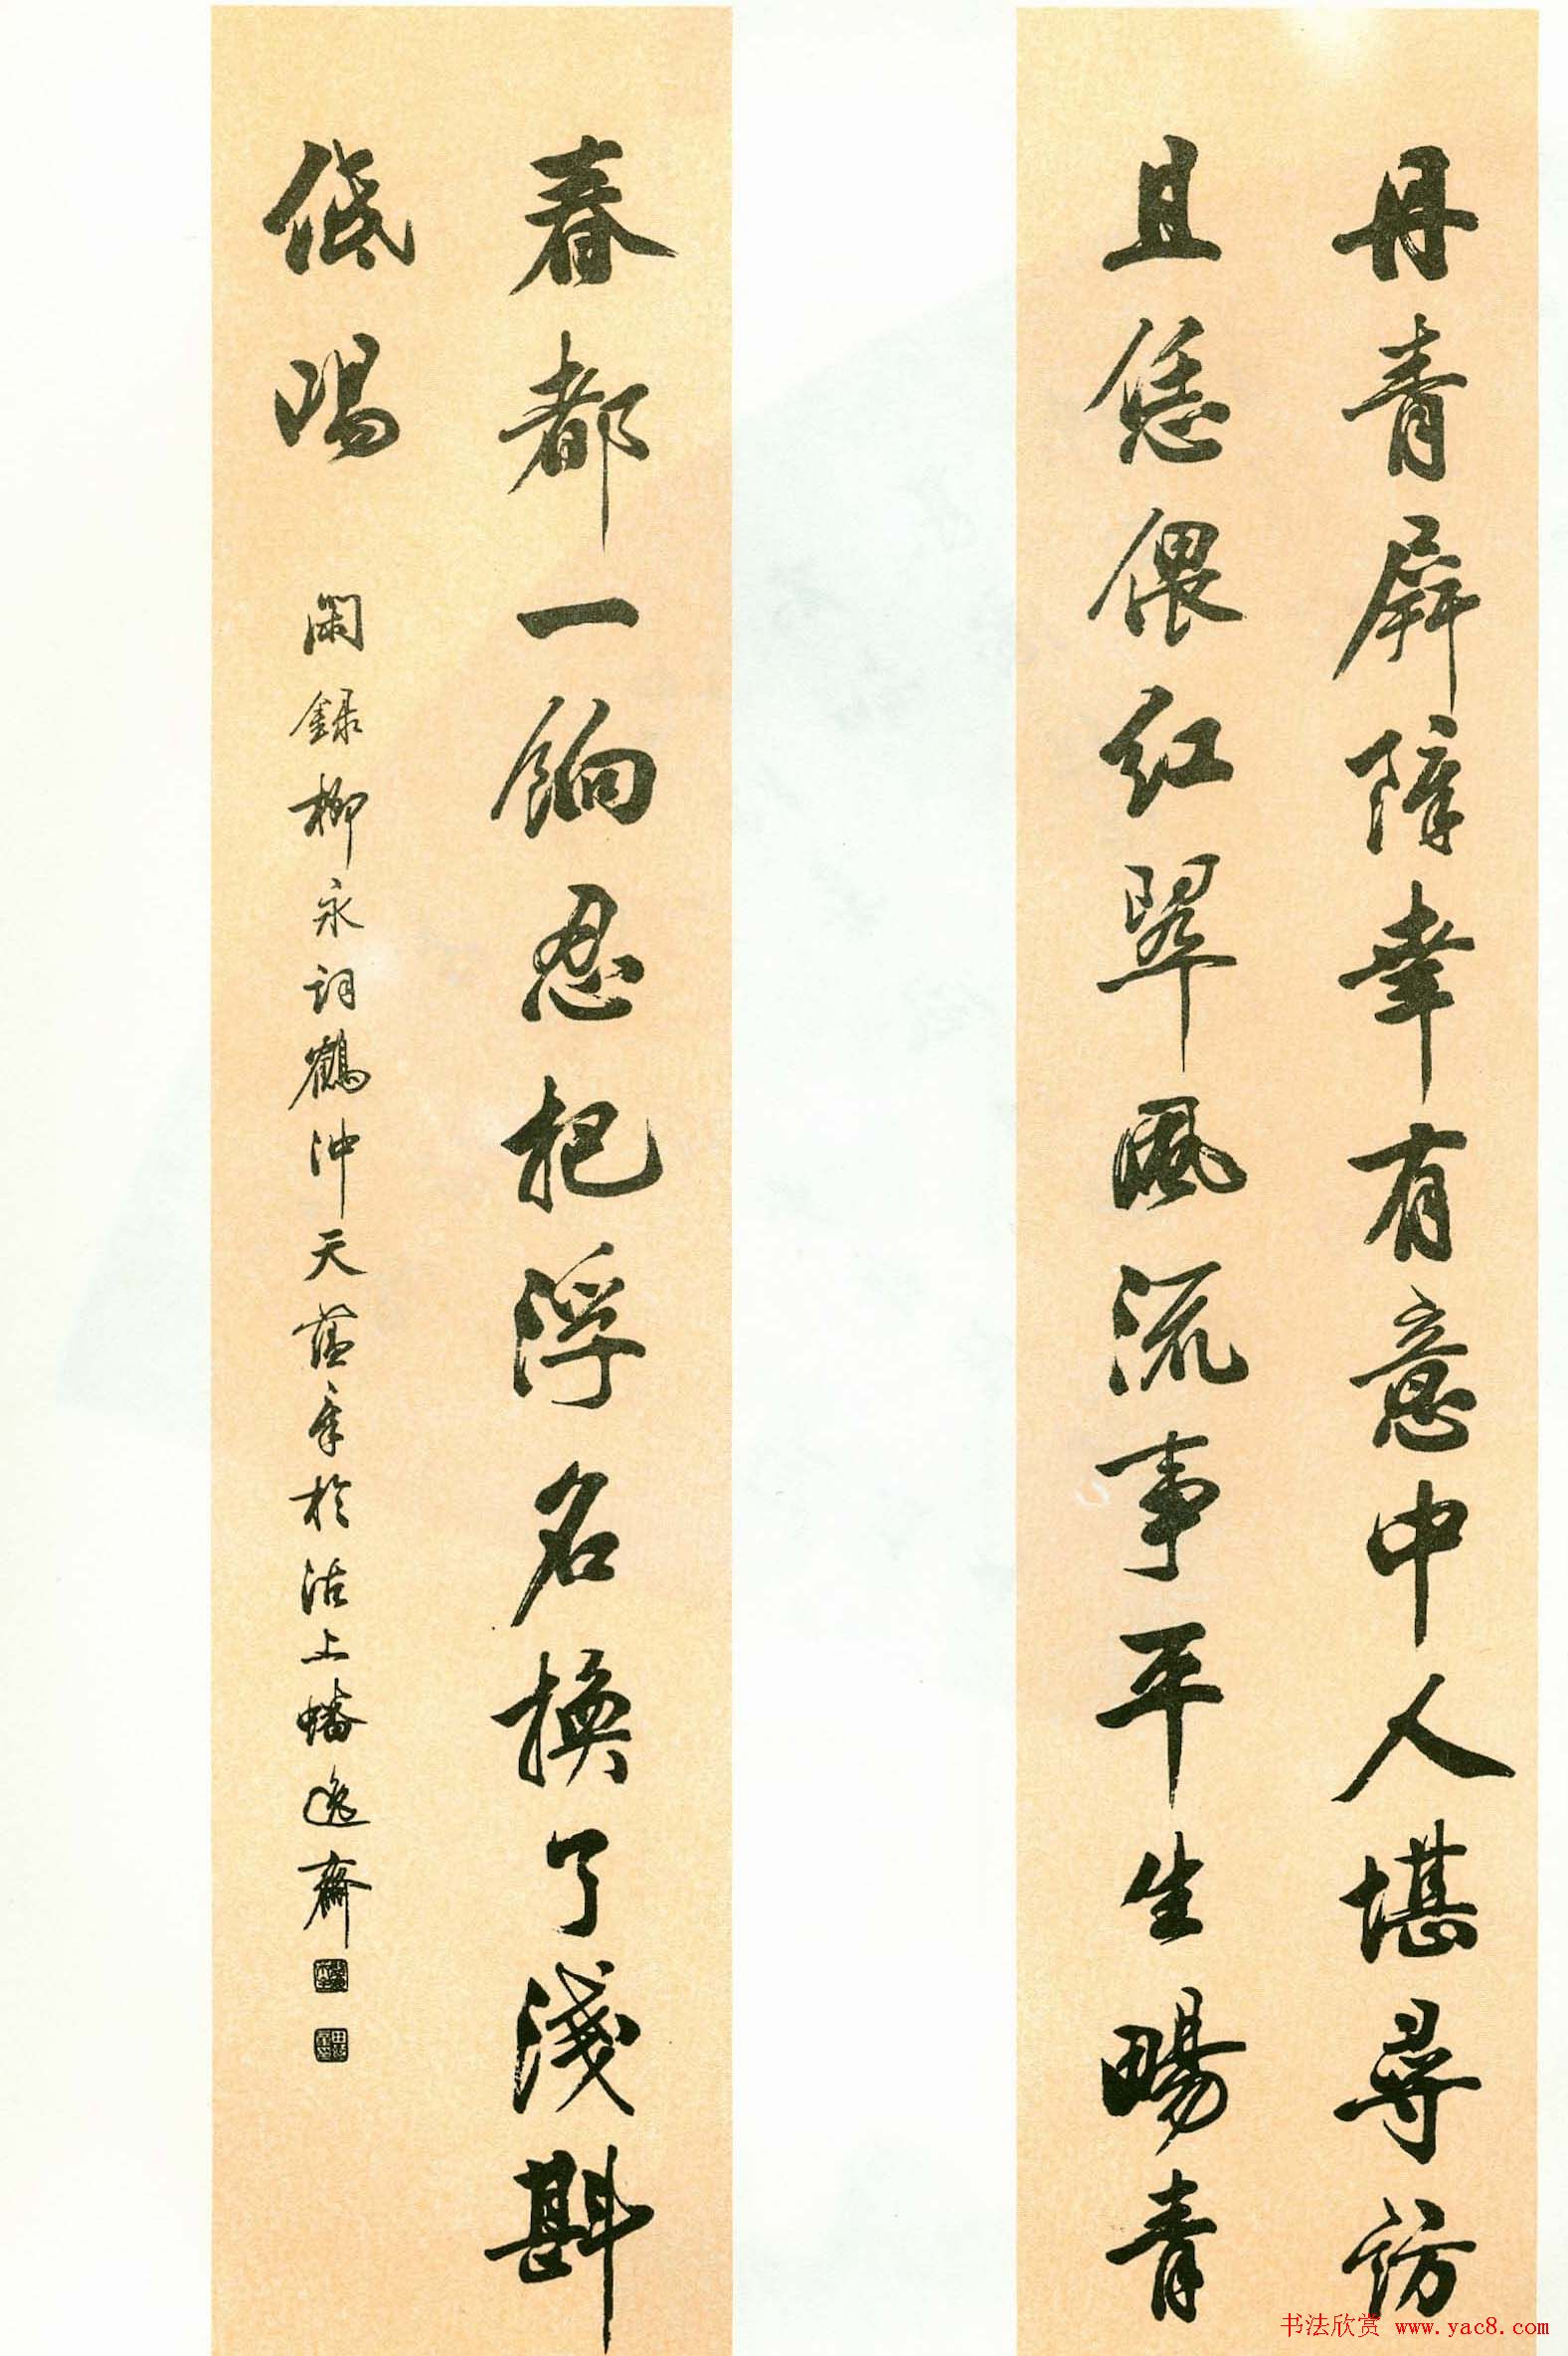 丹青屏障幸有意中人堪尋訪
且恁偎紅翠風流事平生暢青
春都一餉忍把浮名換了淺斟
低唱
閑録柳永詞鶴沖天蕴章於沽上蟠逸齋
书法欣赏 www.yac8.com